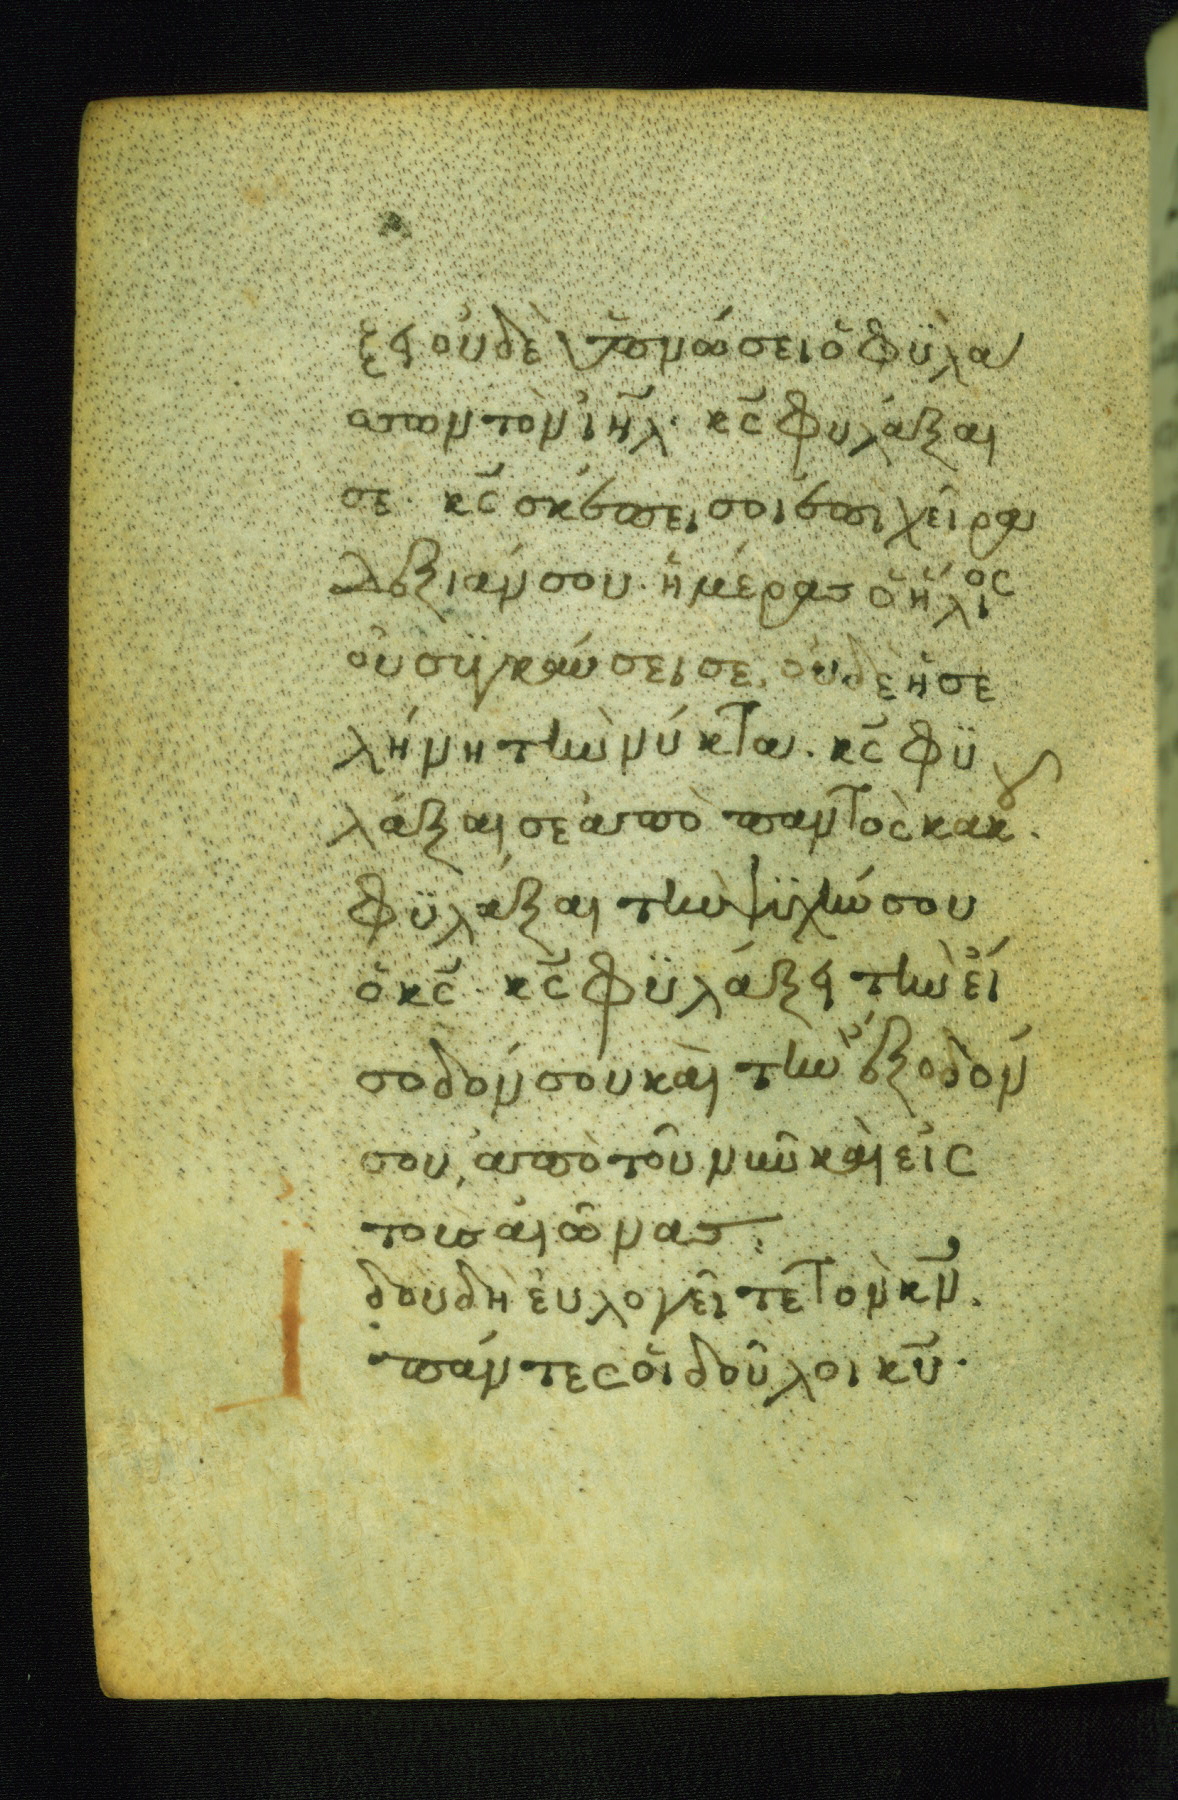 ξει οὐδὲ ὑπνώσει ὁ φϋλά
σσων τὸν ἰη̅λ. κ̅ς φυλάξαι
σε. κ̅ς σκέπει σοι ἐπι χεῖρα
δεξιάν σου. ἡμέρας ὁ ἥλιος
οὐ συγκαύσει σε. οὐδὲ ἡ σε
λήνη τὴν νύκτα. κ̅ς φϋ
λάξαι σε ἀπὸ παντὸς κακοῦ.
φϋλάξαι τὴν ψϋχήν σου
ὁ κ̅ς. κ̅ς φϋλάξει τὴν εἴ
σοδόν σου καὶ τὴν ἔξοδόν
σου, ἀπὸ τοῦ νῦν καὶ εἰς
τοὺς αἰῶνας:
Ιδοὺ δὴ ἐυλογεῖτε τὸν κ̅ν.
πάντες οἱ δοῦλοι κ̅υ.